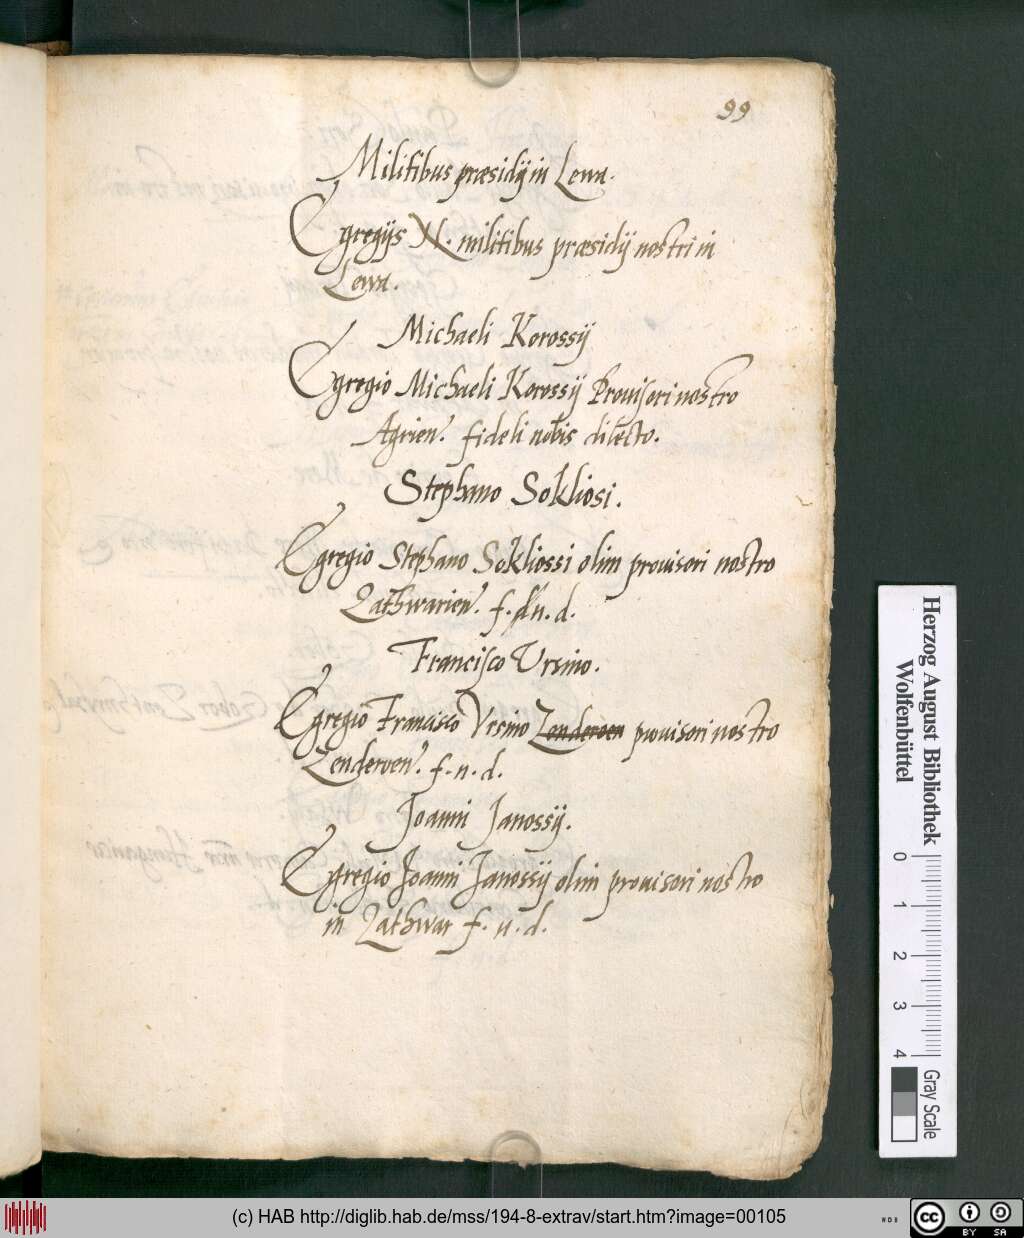 99
Militibus præsidij in Lewa.
Egregijs N. militibus præsidij nostri in
Lewa.
Michaeli Korossij
Egregio Michaeli Korossij Prouisori nostro
Agrien. fideli nobis dilecto.
Stephano Sokliosi.
Egregio Stephano Sokliossi olim prouisori nostro
Lathwarien. f. n. d.
Francisco Vrsino.
Egregio Francisco Vrsino Zenderoen prouisori nostro
Zenderoen. f. n. d.
Joanni Janossij.
Egregio Joanni Janossij olim prouisori nostro
in Lathwar f. n. d.
Herzog August Bibliothek
Wolfenbüttel
0 1 2 3 4
Gray Scale
(c) HAB http://diglib.hab.de/mss/194-8-extrav/start.htm?image=00105
WDB
cc BY SA